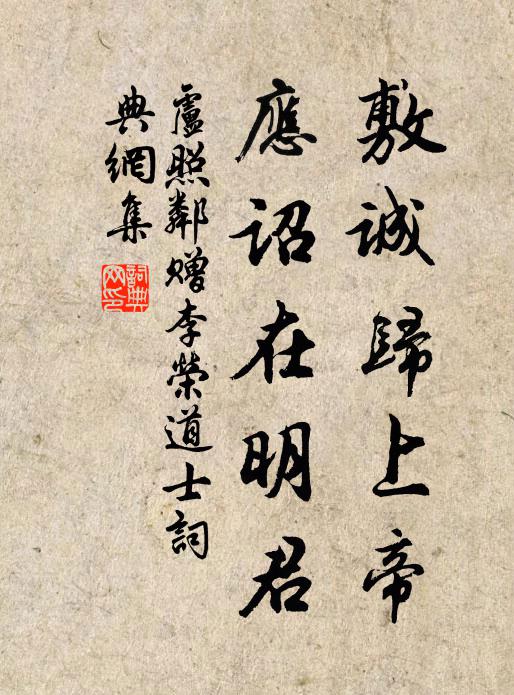 敷誠歸上帝
應詔在明君
盧照鄰贈李榮道士詞
典網集
詞典網印